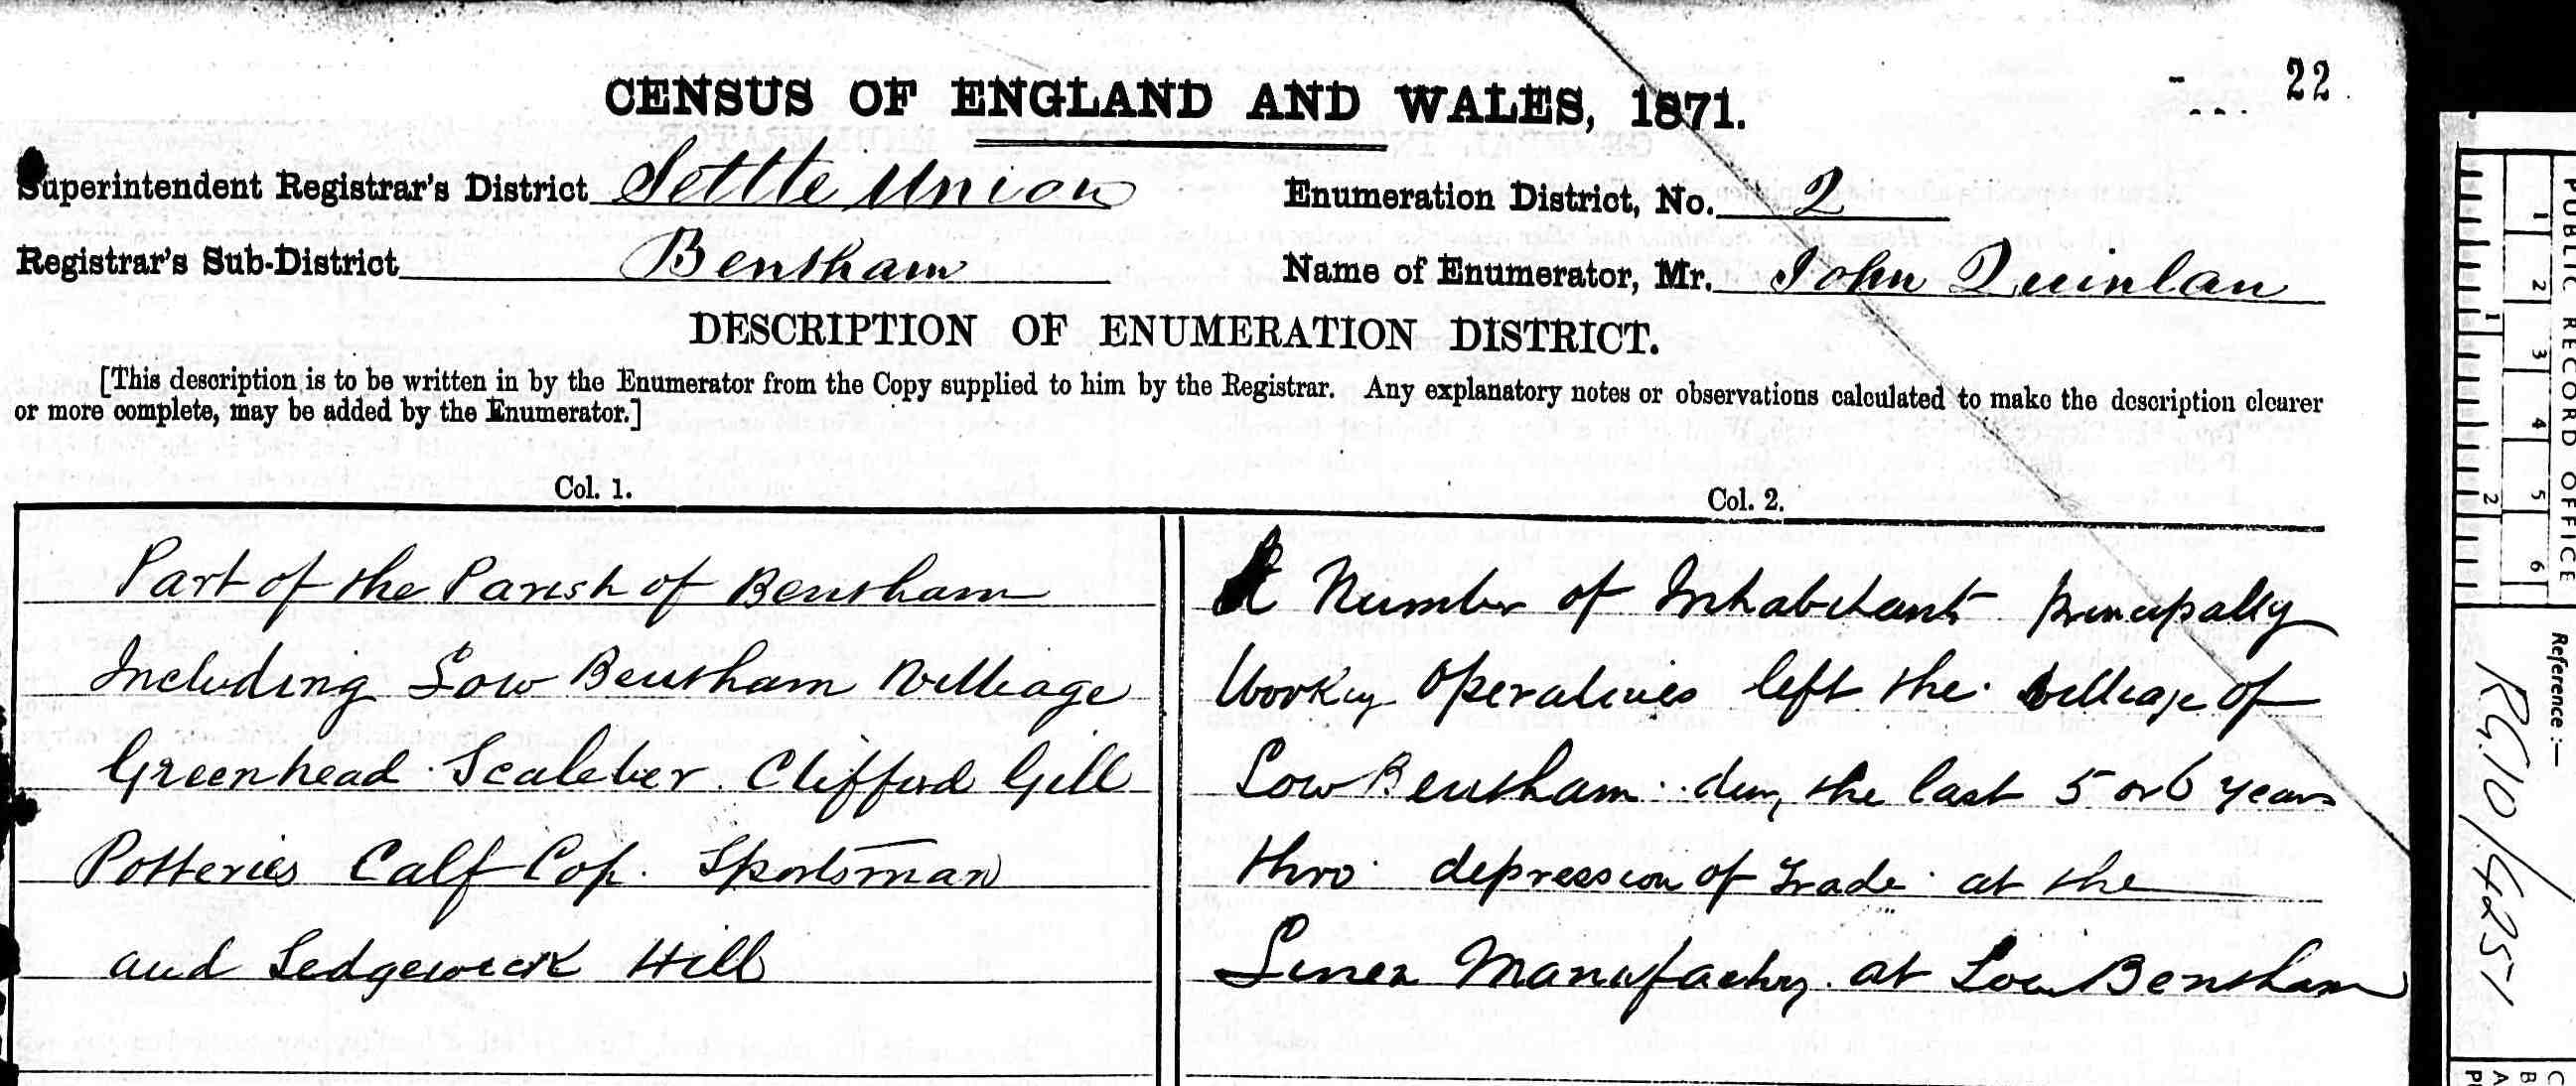 22
CENSUS OF ENGLAND AND WALES, 1871.
Superintendent Registrar's District Settle Union
Enumeration District, No. 2
Registrar's Sub-District Bentham
Name of Enumerator, Mr. John Quinlan
DESCRIPTION OF ENUMERATION DISTRICT.
[This description is to be written in by the Enumerator from the Copy supplied to him by the Registrar. Any explanatory notes or observations calculated to make the description clearer
or more complete, may be added by the Enumerator.]
Col. 1.
Part of the Parish of Bentham
Including Low Bentham Village
Greenhead Scaleber Clifford Gill
Potteries Calf Cop. Sportsman
and Sedgewick Hill
Col. 2.
A Number of Inhabitants principally
Working operatives left the village of
Low Bentham during the last 5 or 6 years
thro depression of Trade at the
Linen Manufactory at Low Bentham
PUBLIC RECORD OFFICE
1 2 3 4 5 6
1 2
Reference :—
RG 10/4251